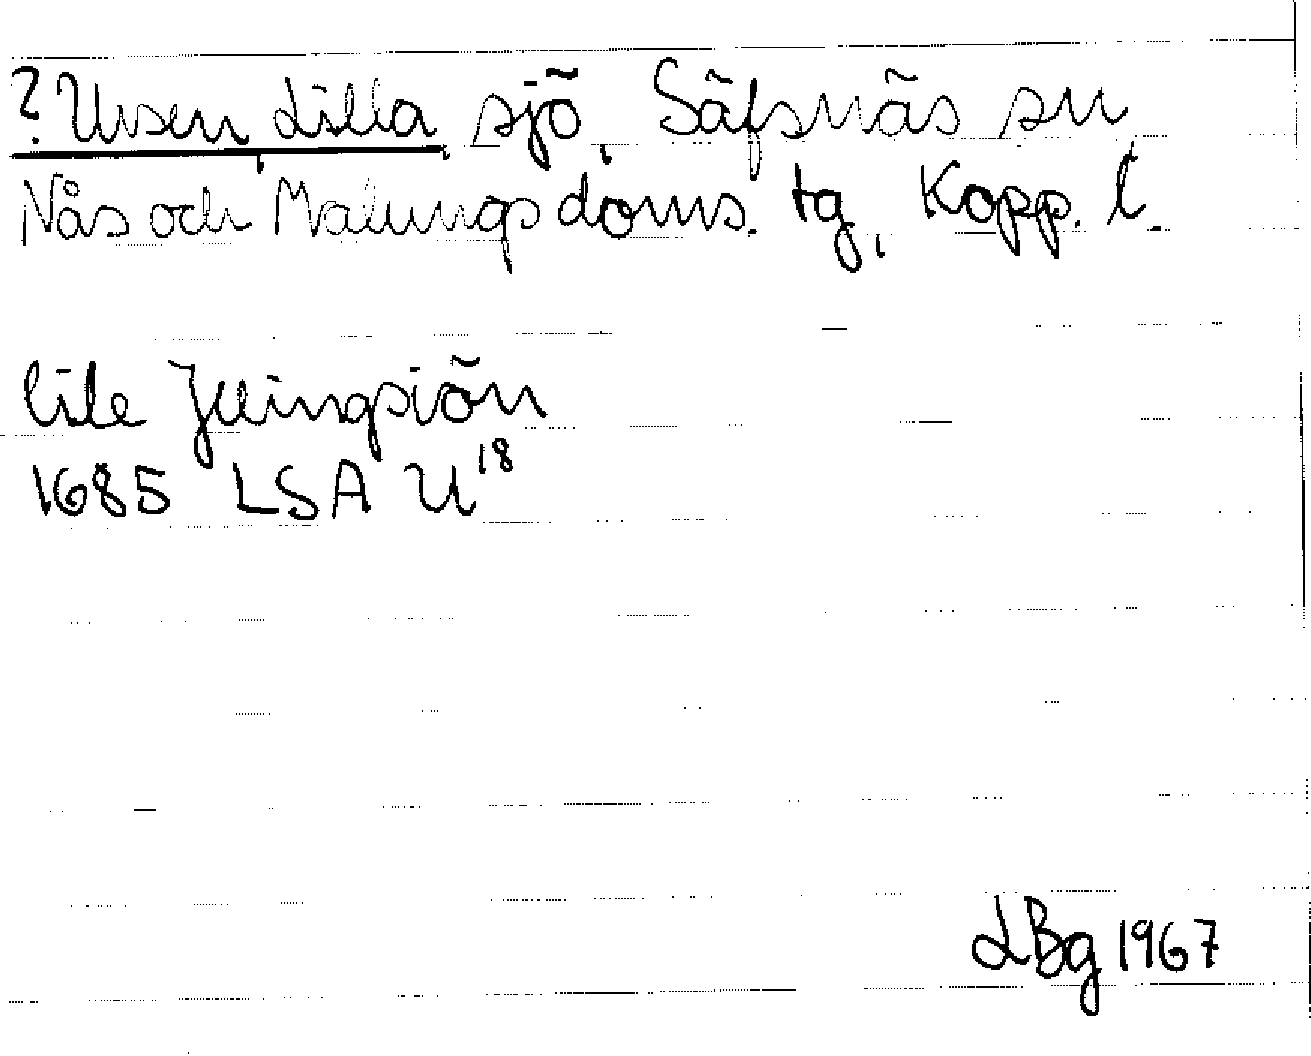 ? Uvsen, Lilla, sjö, Säfsnäs sn
Nås och Malungs doms. tg, Kopp. l.
lile
1685 LSA U18
LBg 1967